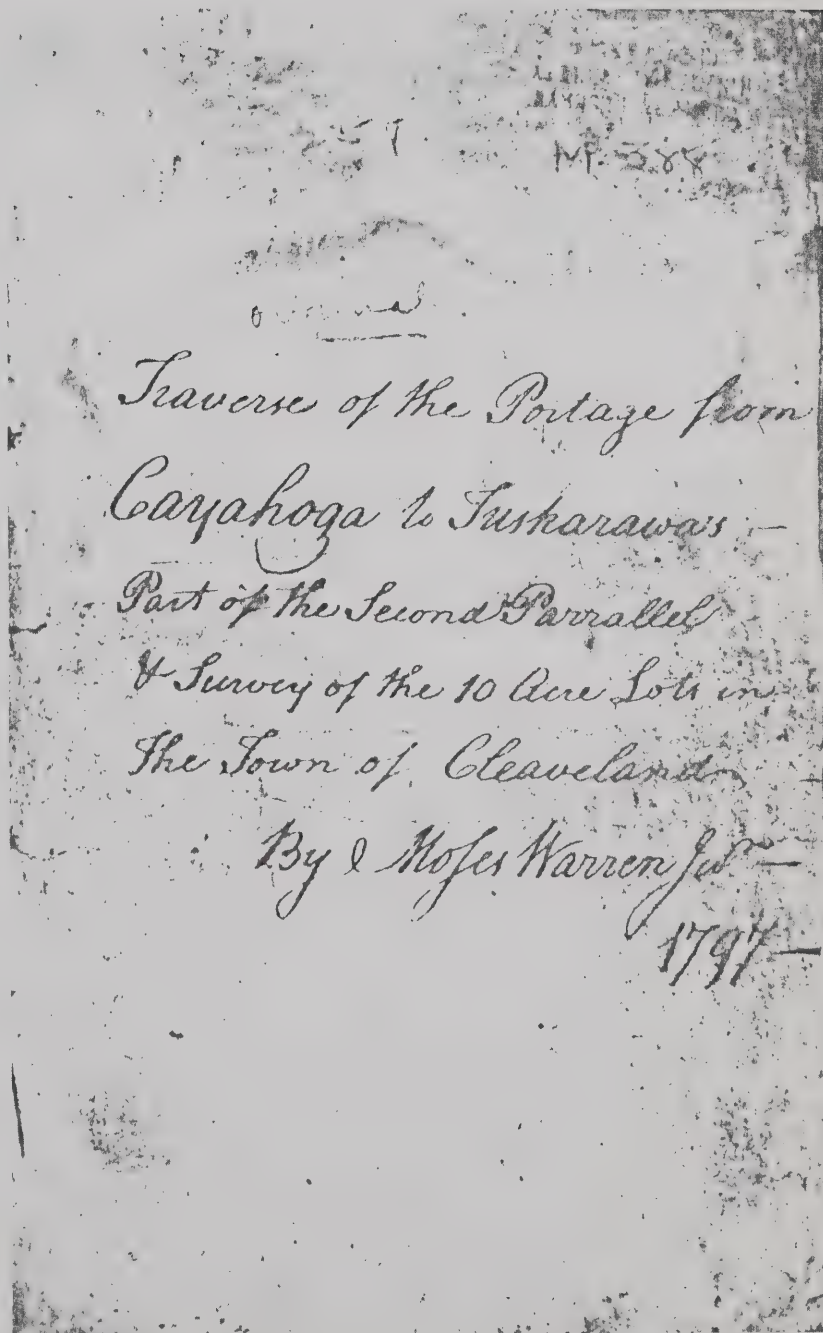 M-588
original
Traverse of the Portage from
Cayahoga to Tuskarawas —
Part of the Second Parrallel
& Survey of the 10 Acre Lots in
The Town of Cleaveland
By Moses Warren Junr —
1797 —